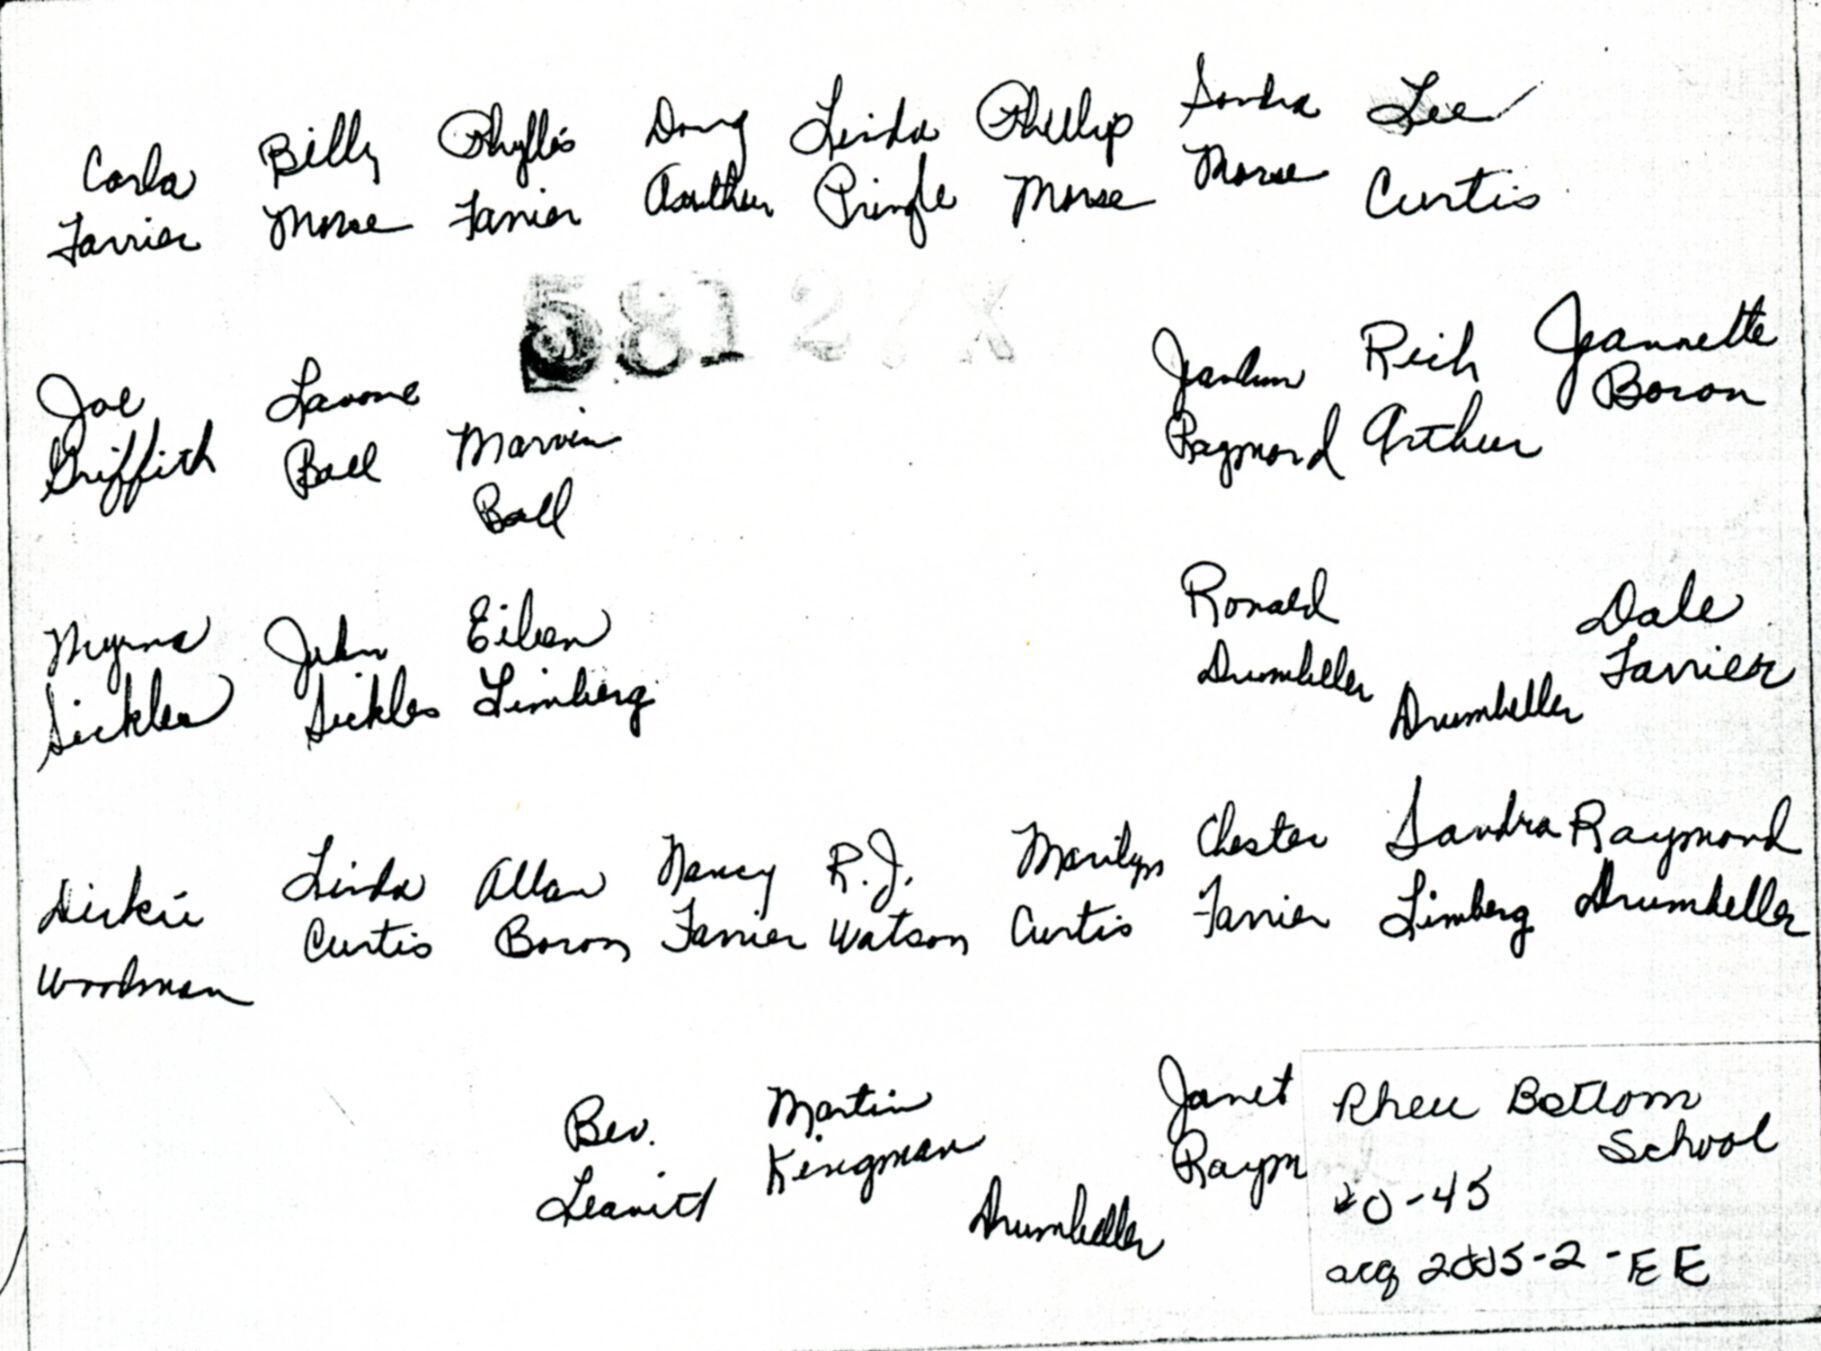 Carla Billy Phyllis Doug Linda Phillip Sandra Lee
Farrier Morse Farrier Arthur Pringle Morse Morse Curtis
581 2 X
Joe Lavone Marvin Rich Jeannette
Griffith Ball Ball Raymond Arthur Boron
Myrna John Eileen Ronald Dale
Sickles Sickles Limberg Drumheller Drumheller Farrier
Dickie Linda Allan Nancy R.J. Marilyn Chester Sandra Raymond
Woodman Curtis Boron Farrier Watson Curtis Farrier Limberg Drumheller
Bev. Martin Janet
Leavitt Kingman Drumheller Raym
Rheu Bottom
School
20-45
acq 2005-2-EE